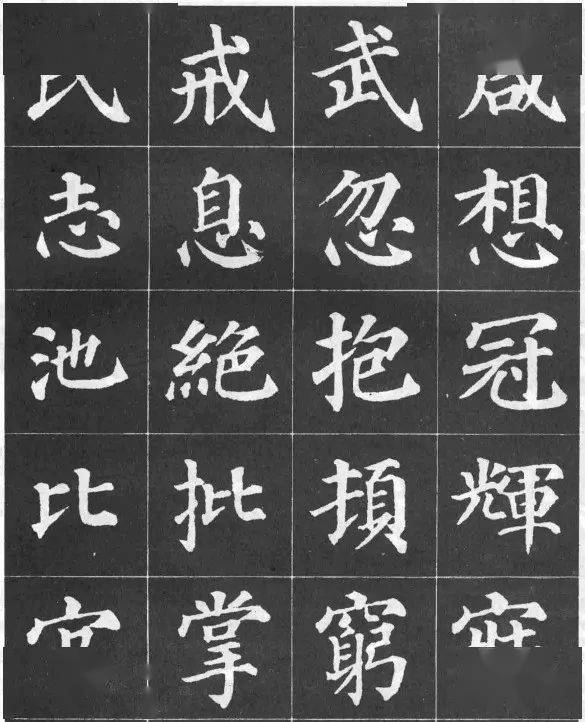 戒 武
志 息 忽 想
池 絶 抱 冠
比 批 輝
掌 窮